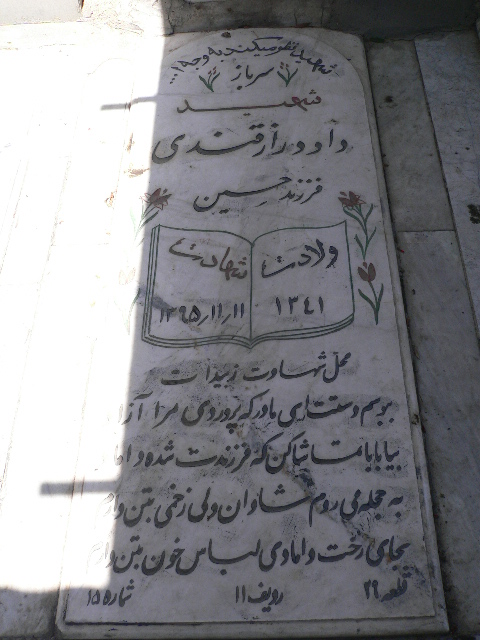 شهید نظر میکند به وجه ا...
سرباز
شهید
داود رازقندی
فرزند حسین
ولادت
۱۳۴۱
شهادت
۱۳۶۵/۱۱/۱۱
محل شهادت زبیدات
ببوسم دستت ای مادر که پروردی مرا آزا
بیا بابا تماشا کن که فرزندت شده داما
به حجله می روم شاداان ولی زخمی بتن دا
بجای رخت دامادی لباس خون بتن دا
قطعه ۲۹
ردیف ۱۱
شماره ۱۵